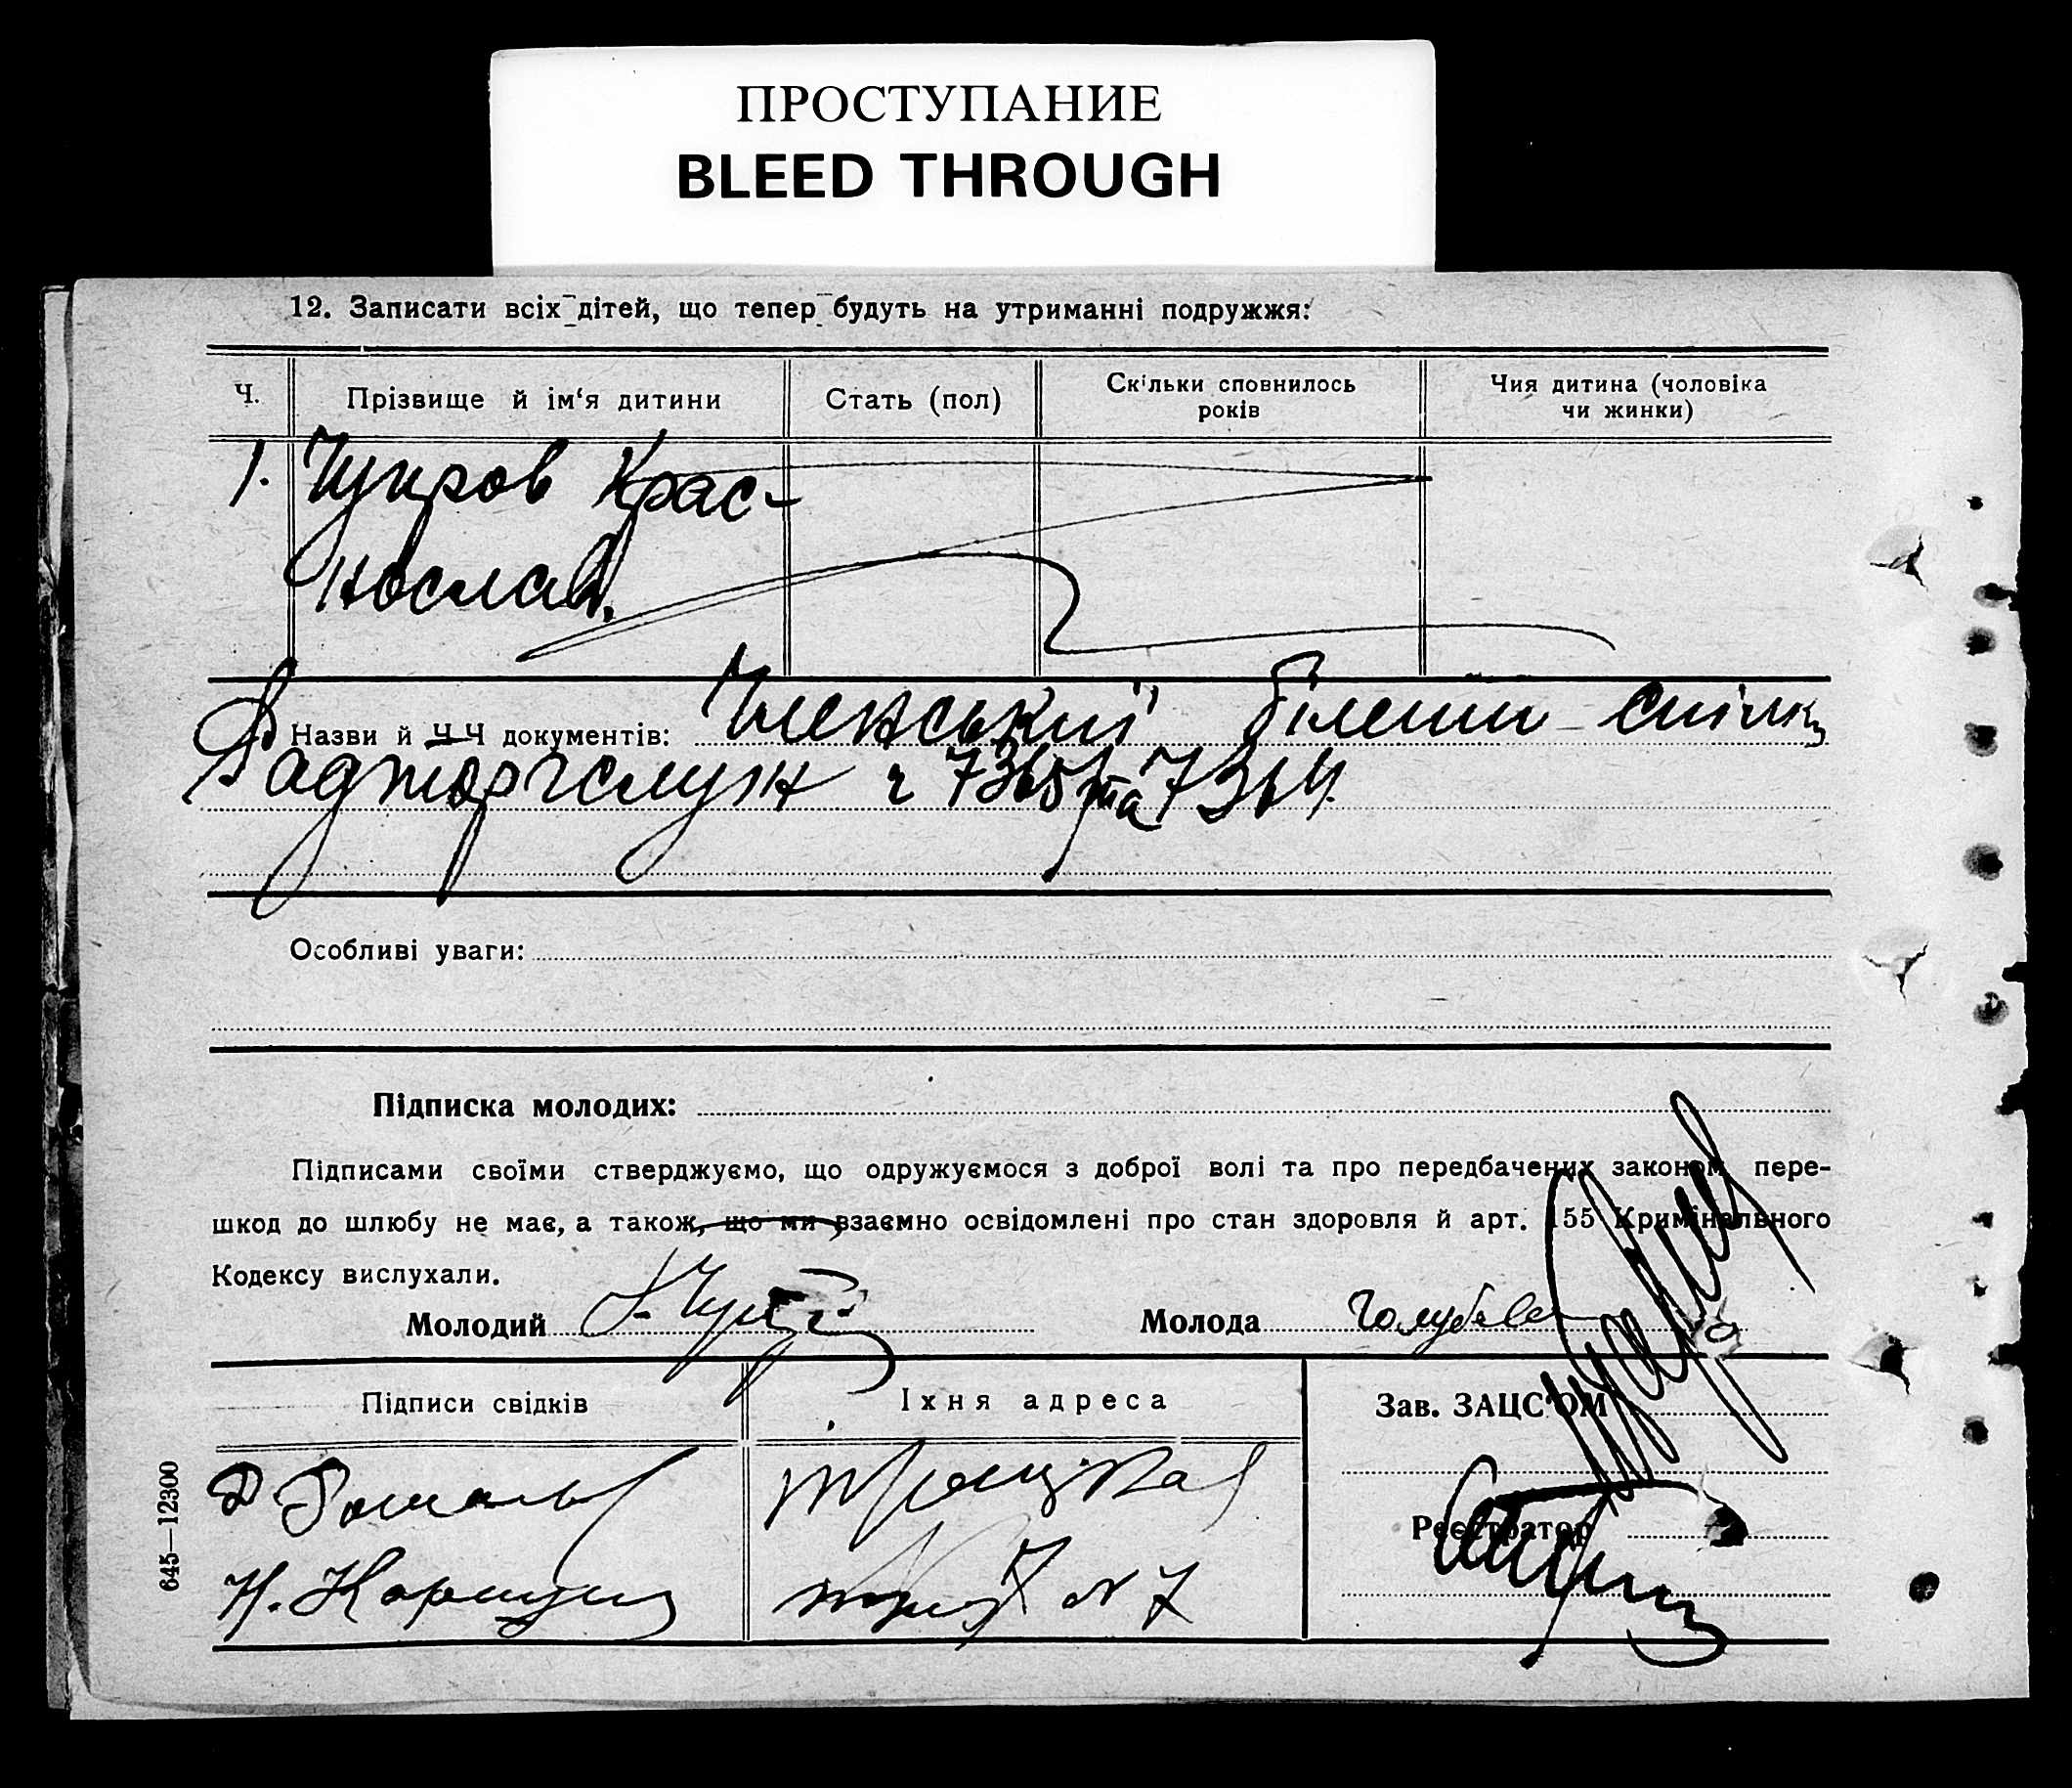 ПРОСТУПАНИЕ
BLEED THROUGH
12. Записати всіх дітей, що тепер будуть на утриманні подружжя:
Ч. Прізвище й ім‘я дитини Стать (пол) Скільки сповнилось років Чия дитина (чоловіка чи жинки)
1. Чупров Крас-
нослав.
Назви й Ч Ч документів: Членський білети спілки
Радторгслуж ч 7365 та 7364.
Особливі уваги:
Підписка молодих:
Підписами своїми стверджуємо, що одружуємося з доброї волі та про передбачених законом пере-
шкод до шлюбу не має, а також, що ми взаємно освідомлені про стан здоровля й арт. 155 Кримінального
Кодексу вислухали.
Молодий Молода Голубева
Підписи свідків Їхня адреса Зав. ЗАЦС'ОМ
Д
Реєстратор
Н. № 7
645—12300